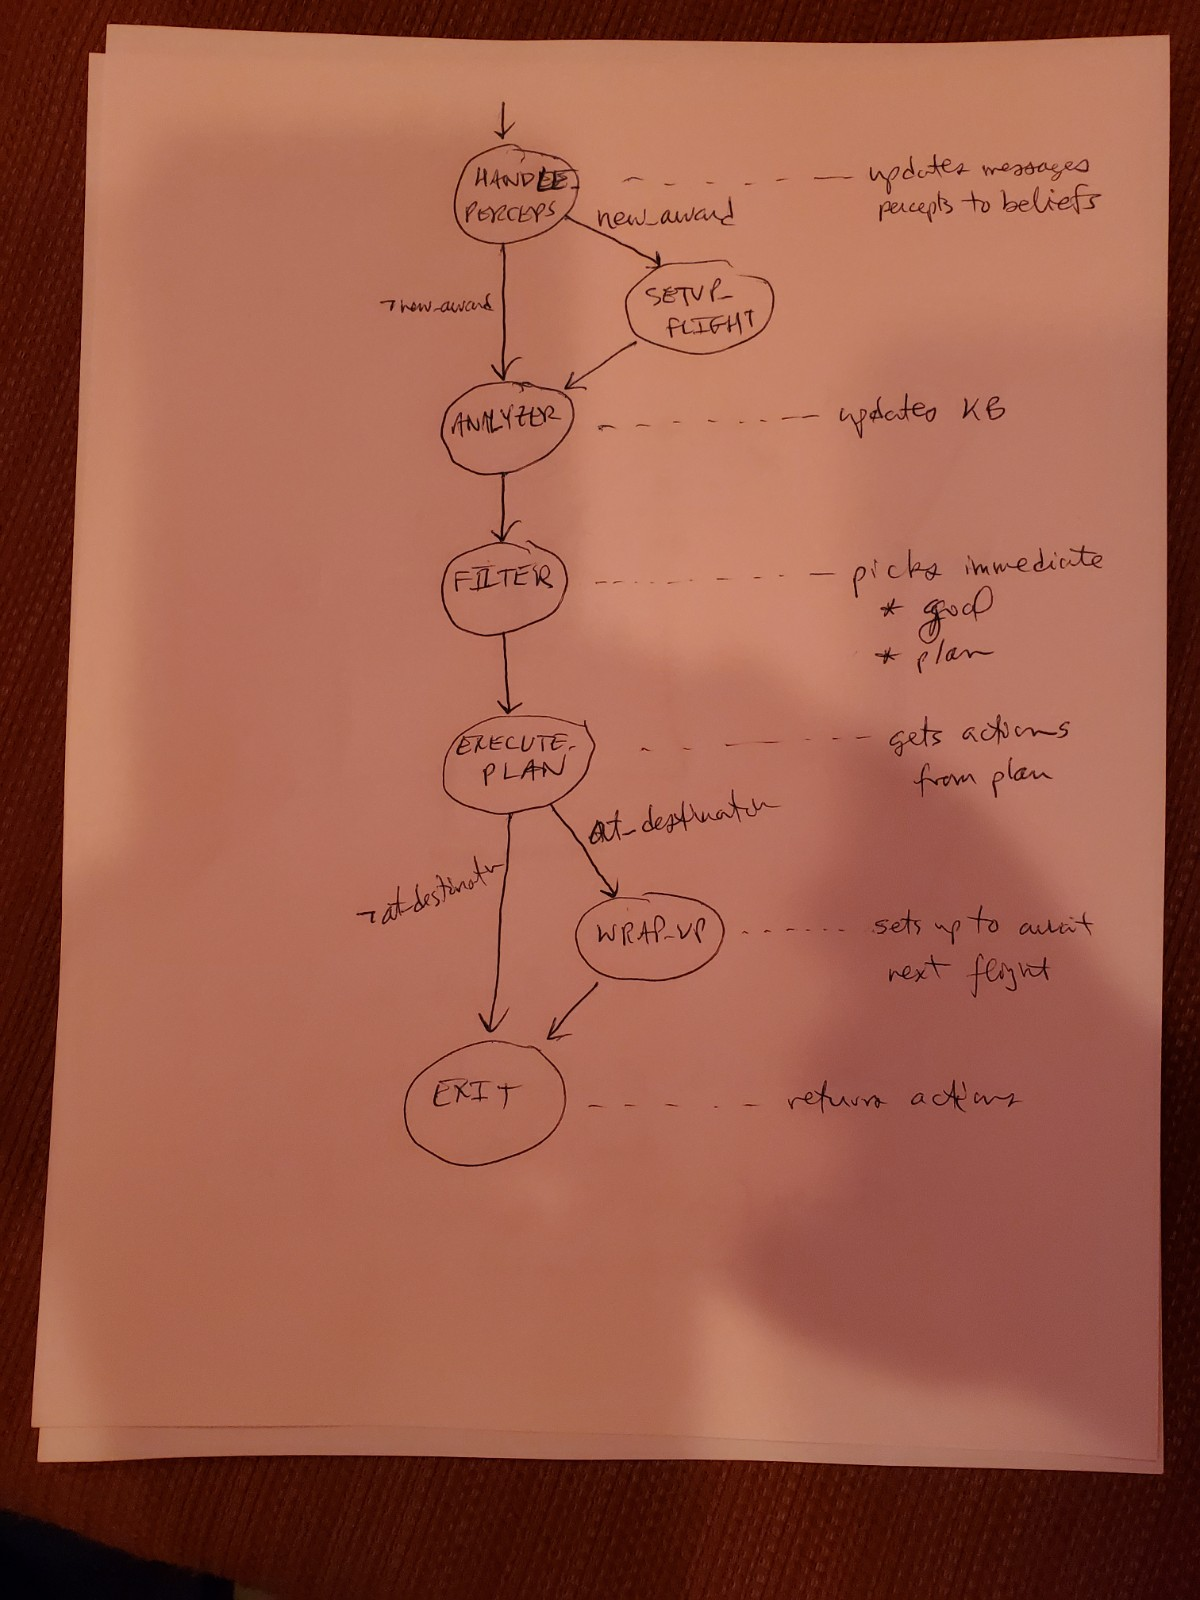 HANDLE_
PERCEPS
updates messages
percepts to beliefs
new_award
¬new_award
SETUP_
FLIGHT
ANALYZER
updates KB
FILTER
picks immediate
* goal
* plan
EXECUTE_
PLAN
gets actions
from plan
at_destination
¬at_destinatn
WRAP_UP
sets up to await
next flight
EXIT
returns actions